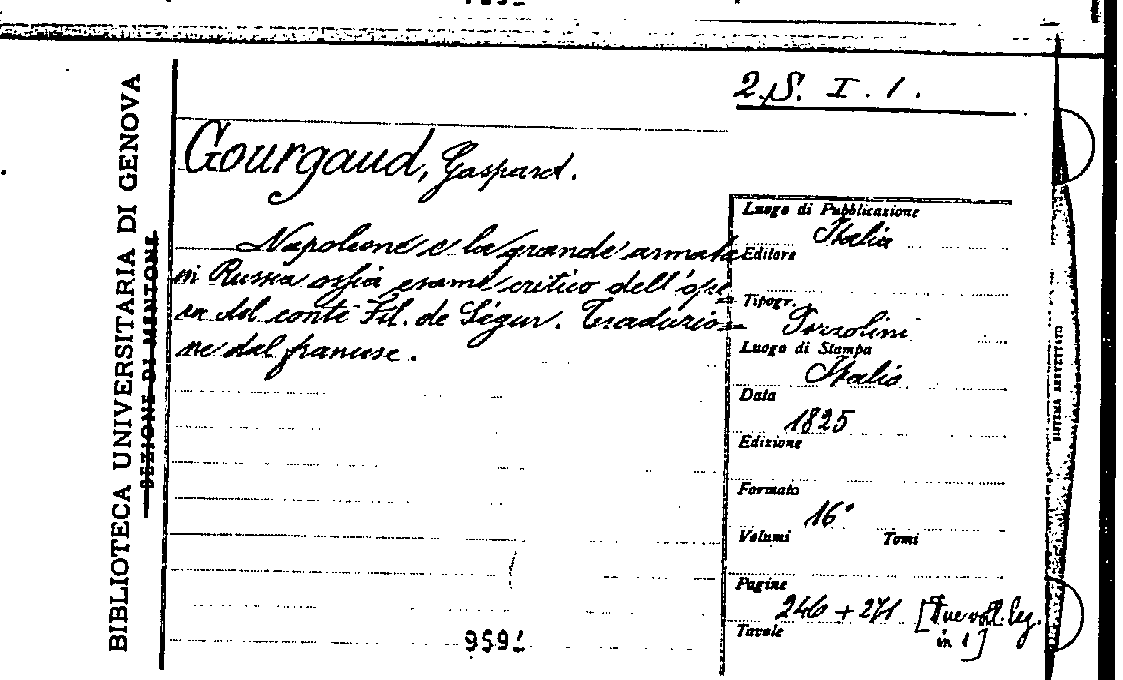 2.S. I. 1.
BIBLIOTECA UNIVERSITARIA DI GENOVA
SEZIONE DI MENTONE
Gourgaud, Gaspard.
Napoleone e la grande armata
in Russia ossia esame critico dell'ope=
ra del conte Fil. de Ségur. Traduzio=
ne dal francese.
Luogo di Pubblicazione
Italia
Editore
Tipogr.
Torzolini
Luogo di Stampa
Italia
Data
1825
Edizione
Formato
16°
Volumi Tomi
Pagine
246 + 271 [Due voll. leg.
in 1]
Tavole
959
SISTEMA BREVETTATO